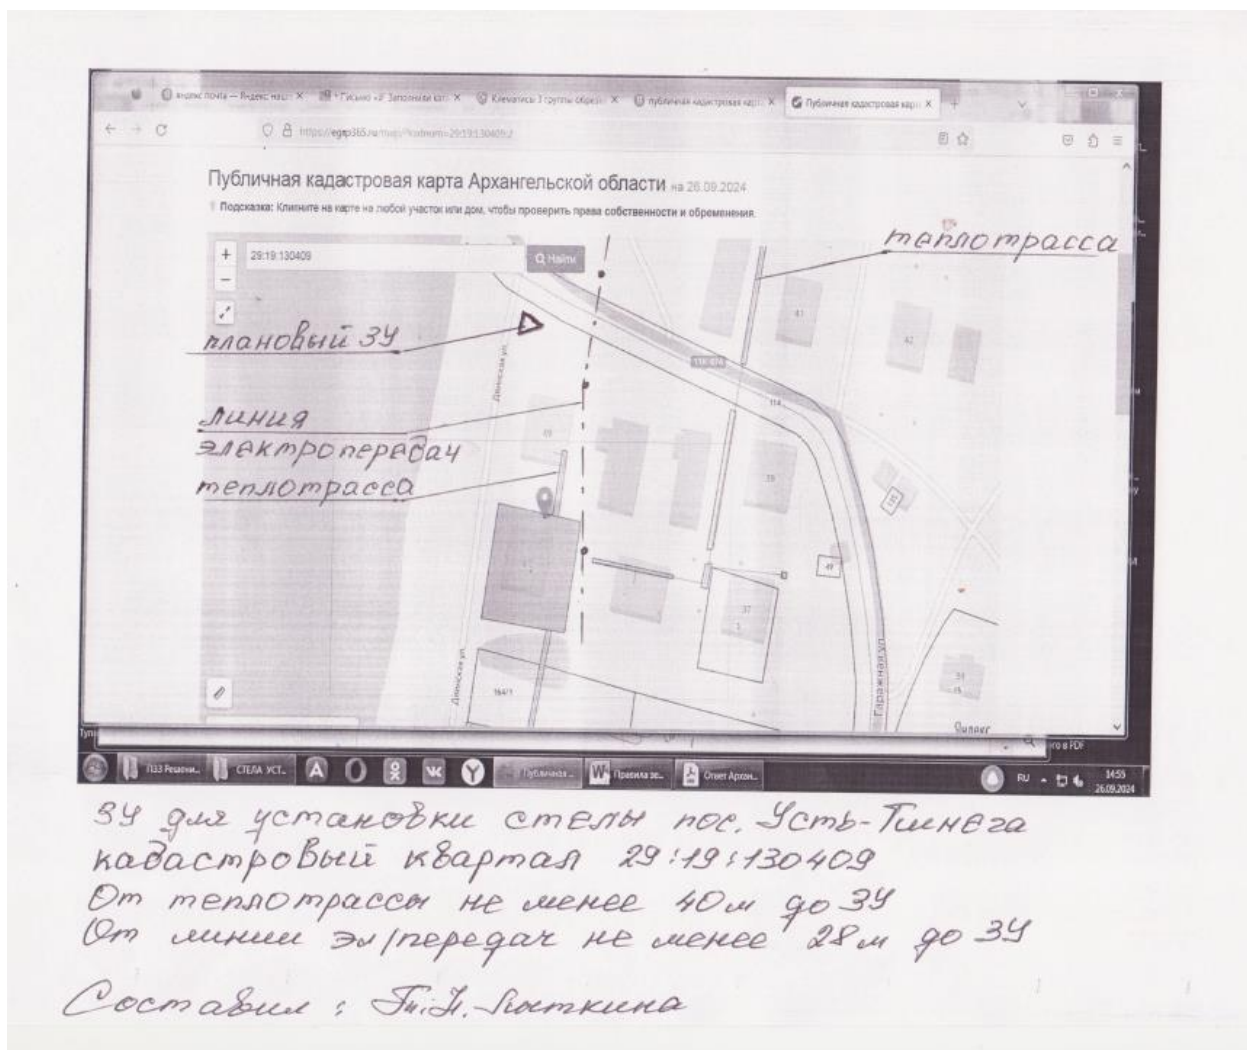 Яндекс почта — Яндекс наш
Письмо «
Клематисы 3 группы обрез
публичная кадастровая кар
Публичная кадастровая кар
https://egrp365.ru/map/?kadnum=29:19:130409:2
Публичная кадастровая карта Архангельской области на 26.09.2024
Подсказка: Кликните на карте на любой участок или дом, чтобы проверить права собственности и обременения.
теплотрасса
29:19:130409
Найти
41
42
плановый ЗУ
Двинская ул.
114
линия
электропередач
теплотрасса
39
49
37
Двинская ул.
Гаражная ул.
16А/1
ПЗЗ Решени...
СТЕЛА УСТ...
Публичная ...
Правила зе...
Ответ Архан...
RU
14:55
26.09.2024
ЗУ для установки стелы пос. Усть-Пинега
кадастровый квартал 29:19:130409
От теплотрассы не менее 40 м до ЗУ
От линии эл/передач не менее 28 м до ЗУ
Составил: